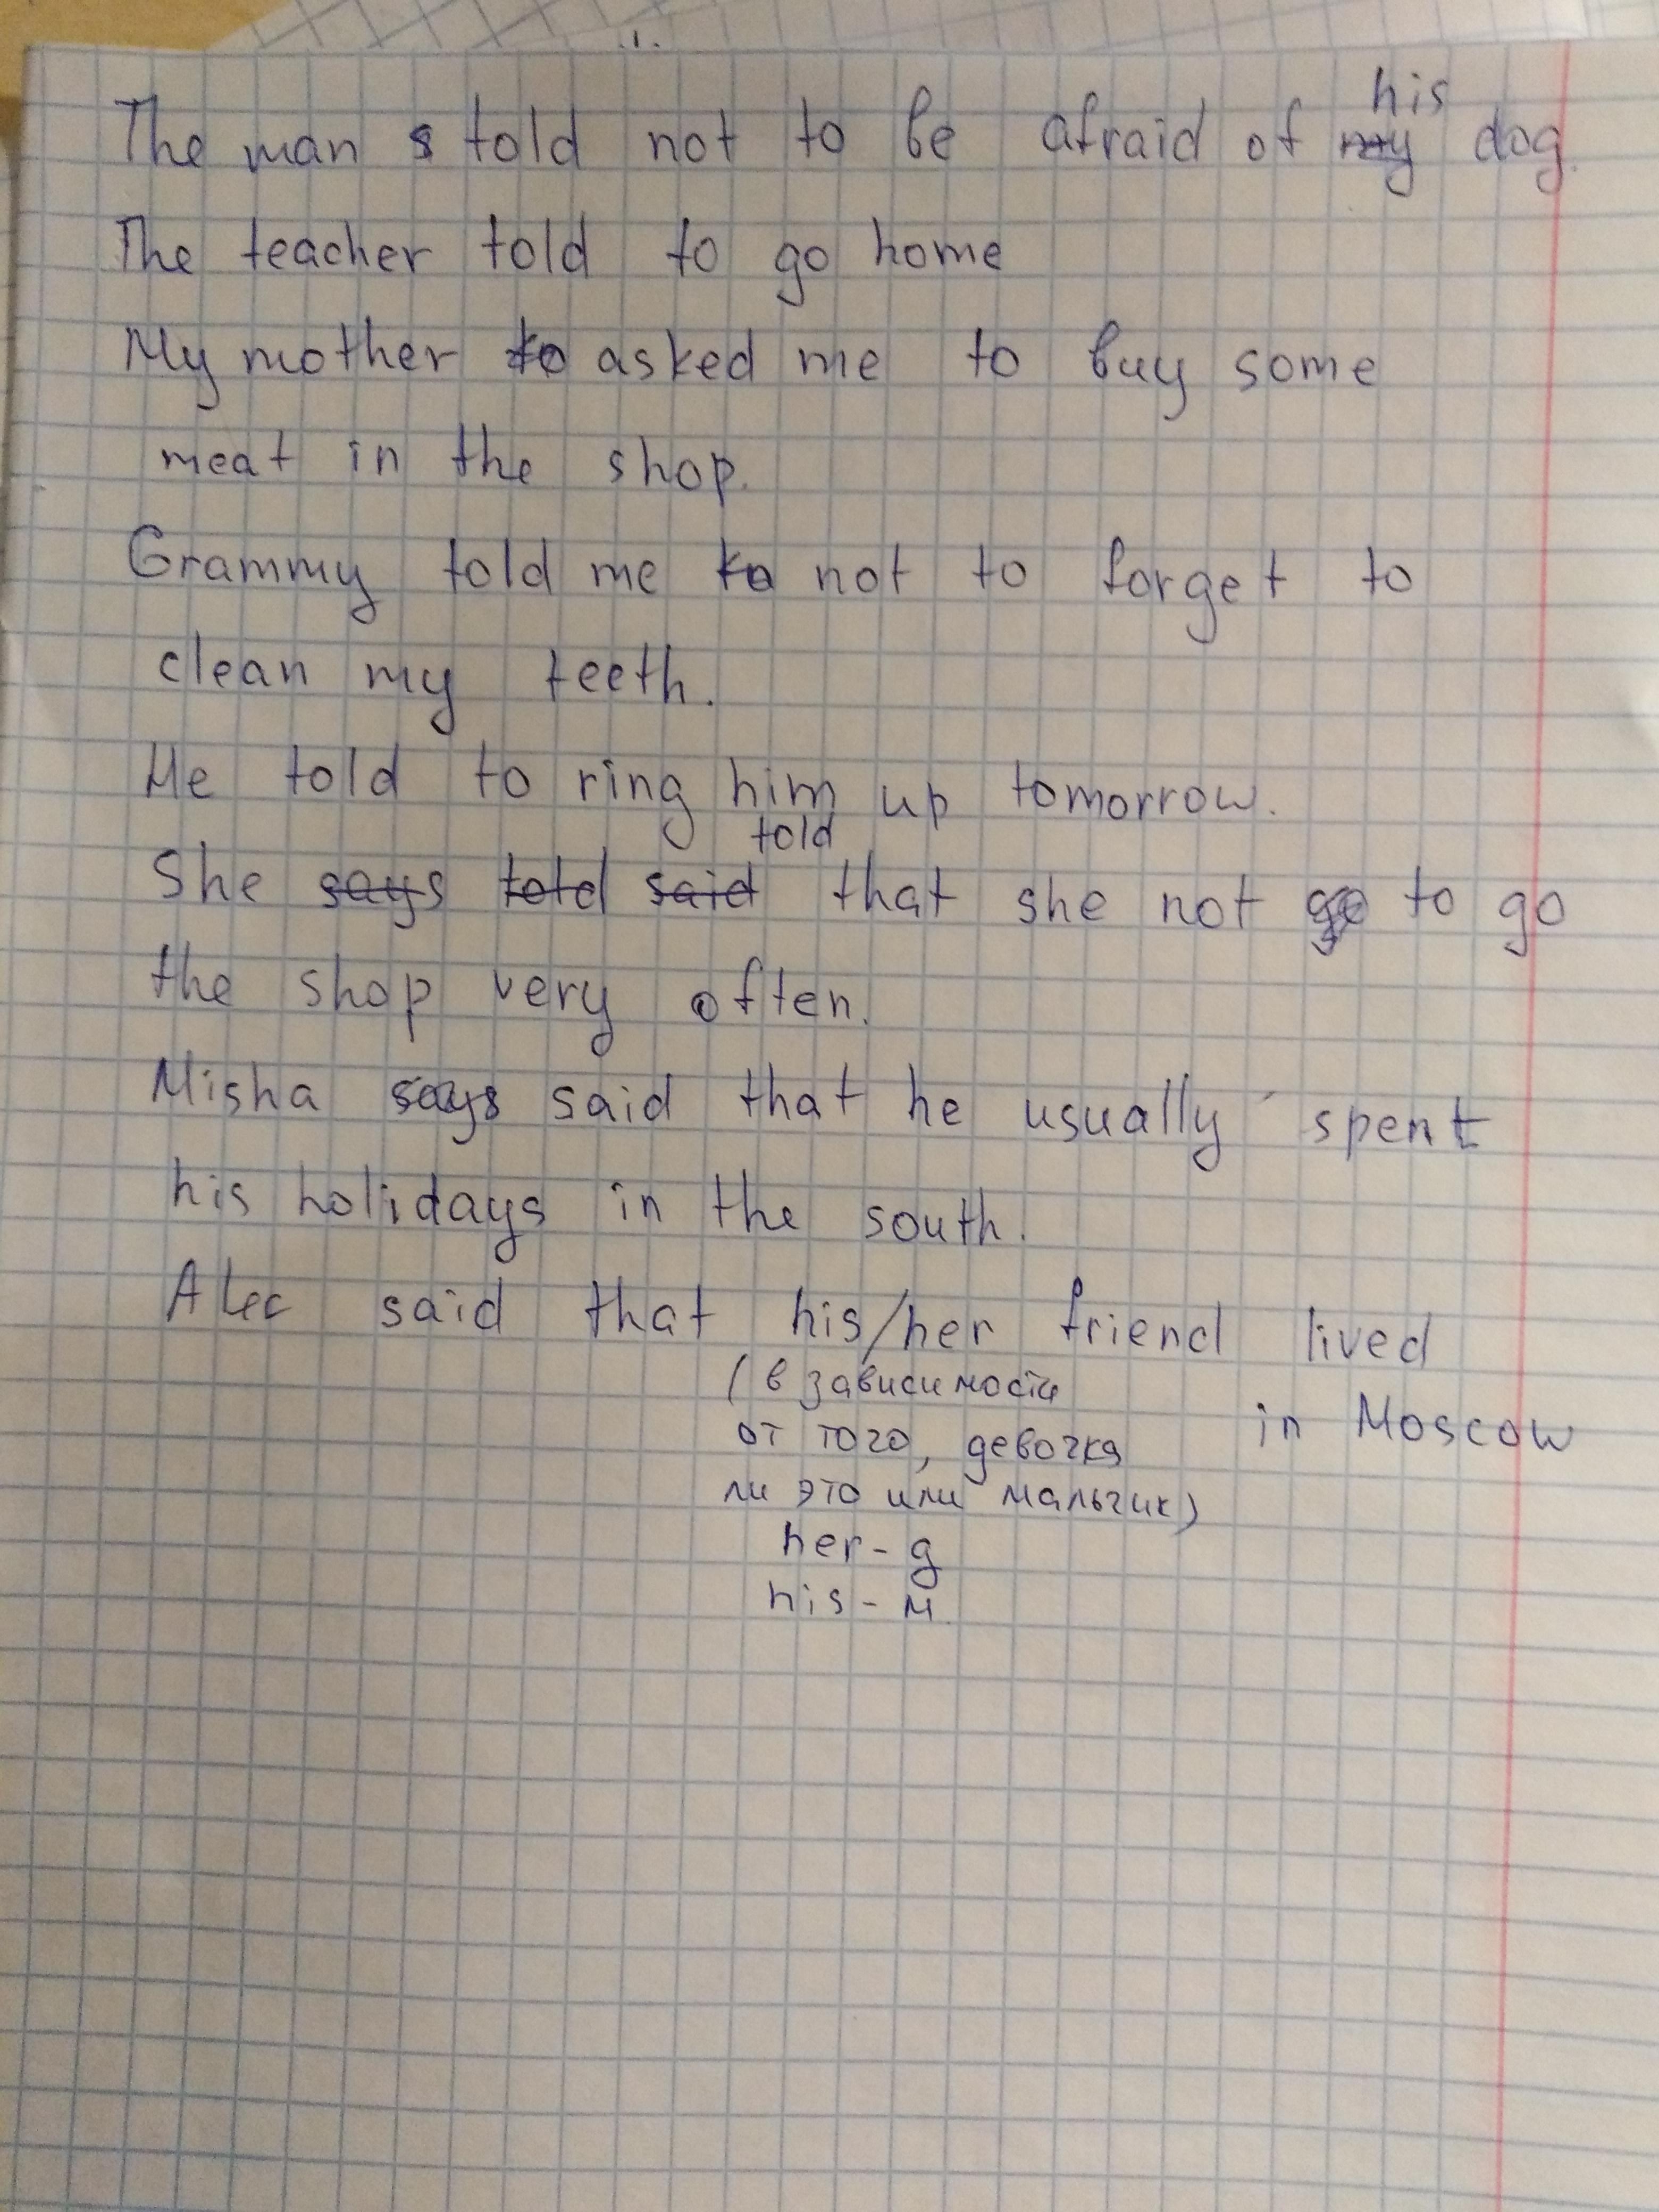 The man told not to be afraid of his dog.
The teacher told to go home
My mother to asked me to buy some
meat in the shop.
Grammy told me to not to forget to
clean my teeth.
He told to ring him up tomorrow.
She says told said told that she not go to go
the shop very often.
Misha says said that he usually spent
his holidays in the south.
Alec said that his/her friend lived
in Moscow
(в зависимости
от того, девочка
ли это или мальчик)
her - g
his - м